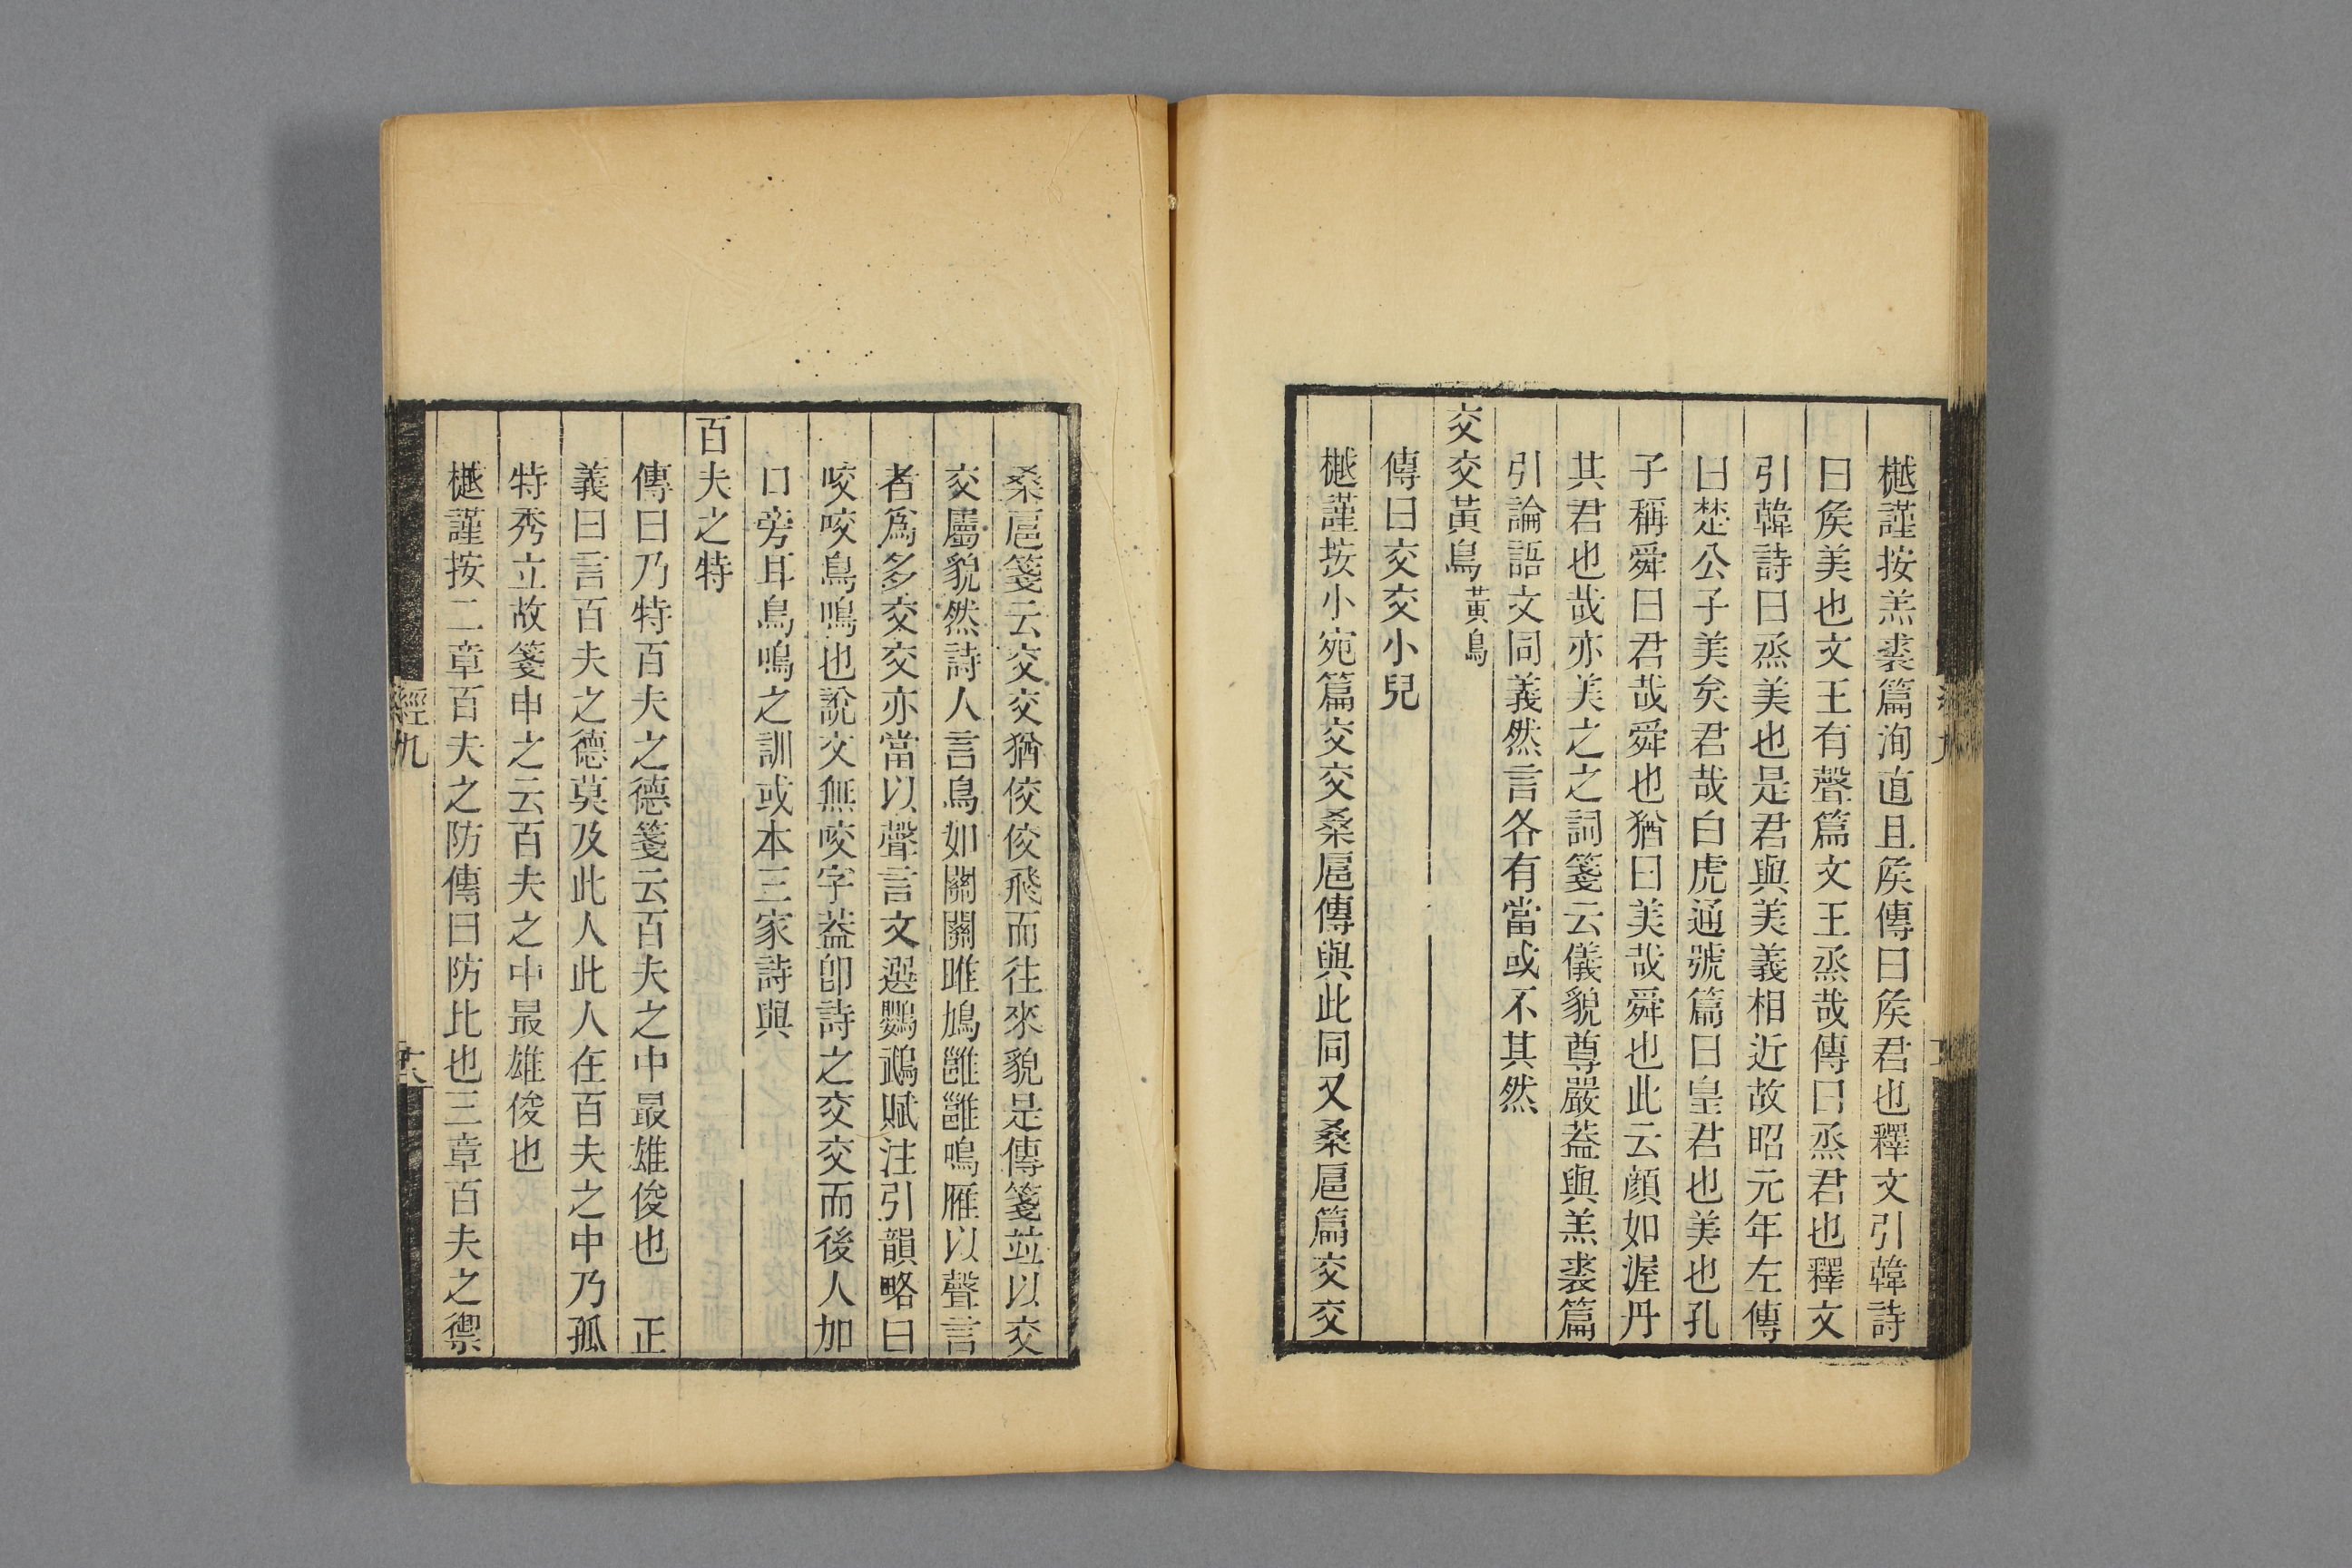 樾謹按羔裘篇洵直且矦傳曰矦君也釋文引韓詩
曰矦美也文王有聲篇文王烝哉傳曰烝君也釋文
引韓詩曰烝美也是君與美義相近故昭元年左傳
曰楚公子美矣君哉白虎通號篇曰皇君也美也孔
子稱舜曰君哉舜也猶曰美哉舜也此云顏如渥丹
其君也哉亦美之之詞箋云儀貌尊嚴葢與羔裘篇
引論語文同義然言各有當或不其然
交交黃鳥黃鳥
傳曰交交小皃
樾謹按小宛篇交交桑扈傳與此同又桑扈篇交交
桑扈箋云交交猶佼佼飛而往來貌是傳箋竝以交
交屬貌然詩人言鳥如關關雎鳩雝雝鳴雁以聲言
者爲多交交亦當以聲言文選鸚鵡賦注引韻略曰
咬咬鳥鳴也說文無咬字葢卽詩之交交而後人加
口旁耳鳥鳴之訓或本三家詩與
百夫之特
傳曰乃特百夫之德箋云百夫之中最雄俊也 正
義曰言百夫之德莫及此人此人在百夫之中乃孤
特秀立故箋申之云百夫之中最雄俊也
樾謹按二章百夫之防傳曰防比也三章百夫之禦
經九